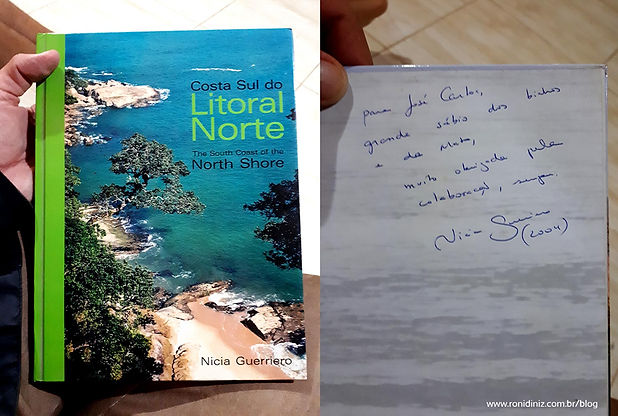 Costa Sul do
Litoral
Norte
The South Coast of the
North Shore
Nicia Guerriero
para José Carlos,
grande sábio dos bichos
e da Mata,
muito obrigada pela
colaboração, sempre.
Nicia Guerriero
(2004)
www.ronidiniz.com.br/blog